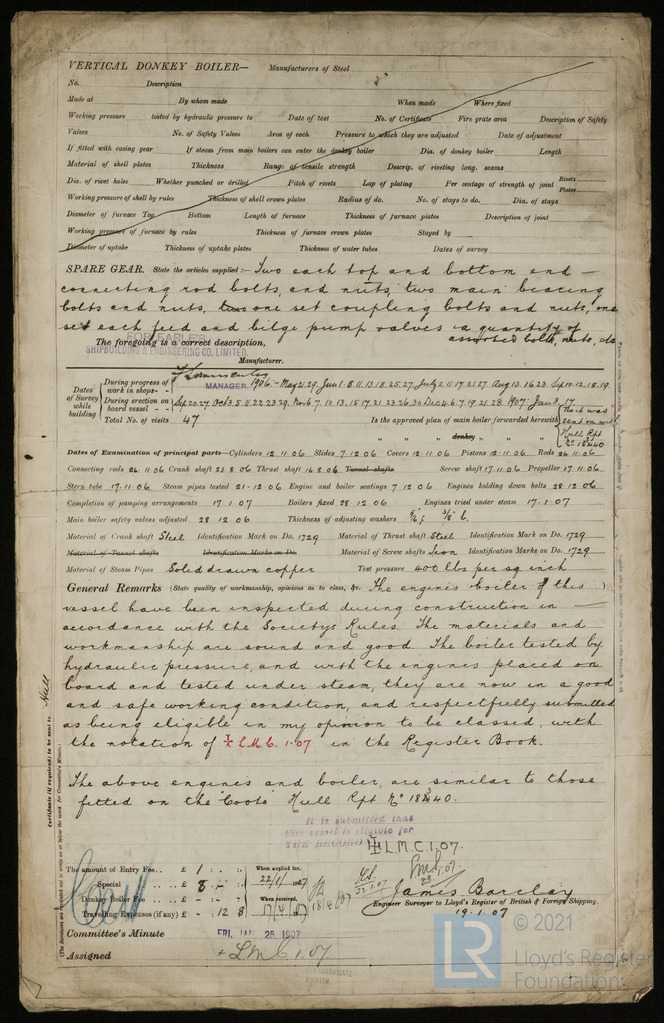 VERTICAL DONKEY BOILER— Manufacturers of Steel
No. Description
Made at By whom made When made Where fixed
Working pressure tested by hydraulic pressure to Date of test No. of Certificate Fire grate area Description of Safety
Valves No. of Safety Valves Area of each Pressure to which they are adjusted Date of adjustment
If fitted with easing gear If steam from main boilers can enter the donkey boiler Dia. of donkey boiler Length
Material of shell plates Thickness Range of tensile strength Descrip. of riveting long. seams
Dia. of rivet holes Whether punched or drilled Pitch of rivets Lap of plating Per centage of strength of joint Rivets Plates
Working pressure of shell by rules Thickness of shell crown plates Radius of do. No. of stays to do. Dia. of stays
Diameter of furnace Top Bottom Length of furnace Thickness of furnace plates Description of joint
Working pressure of furnace by rules Thickness of furnace crown plates Stayed by
Diameter of uptake Thickness of uptake plates Thickness of water tubes Dates of survey
SPARE GEAR. State the articles supplied:— Two each top and bottom end
connecting rod bolts, and nuts, two main bearing
bolts and nuts, two one set coupling bolts and nuts, one
set each feed and bilge pump valves a quantity of
assorted bolts, nuts, etc
The foregoing is a correct description,
FOR EARLE'S
SHIPBUILDING & ENGINEERING CO. LIMITED.
Manufacturer.
MANAGER.
Dates of Survey while building
During progress of work in shops - - 1906 - May 21. 29. Jun 1. 8. 11. 13. 18. 25. 27. July 2. 11. 17. 21. 27. Aug 13. 16. 23. Sep 10. 12. 18. 19.
During erection on board vessel - - - Sep 20. 27. Oct 3. 5. 11. 22. 23. 29. Nov 6. 7. 10. 13. 15. 17. 21. 23. 26. 30. Dec 4. 6. 7. 19. 21. 28. 1907 Jan 3. 17.
Total No. of visits 47 Is the approved plan of main boiler forwarded herewith No it was sent on with Hull Rpt No 18340
" " " donkey " " "
Dates of Examination of principal parts—Cylinders 12.11.06 Slides 7.12.06 Covers 12.11.06 Pistons 12.11.06 Rods 26.11.06
Connecting rods 26.11.06 Crank shaft 23.8.06 Thrust shaft 16.8.06 Tunnel shafts Screw shaft 17.11.06 Propeller 17.11.06
Stern tube 17.11.06 Steam pipes tested 21.12.06 Engine and boiler seatings 7.12.06 Engines holding down bolts 28.12.06
Completion of pumping arrangements 17.1.07 Boilers fixed 28.12.06 Engines tried under steam 17.1.07
Main boiler safety valves adjusted 28.12.06 Thickness of adjusting washers
Material of Crank shaft Steel Identification Mark on Do. 1729 Material of Thrust shaft Steel Identification Mark on Do. 1729
Material of Tunnel shafts Identification Marks on Do. Material of Screw shafts Iron Identification Marks on Do. 1729
Material of Steam Pipes Solid drawn copper Test pressure 400 lbs per sq inch
General Remarks (State quality of workmanship, opinions as to class, &c. The engines boiler of this
vessel have been inspected during construction in
accordance with the Societys Rules. The materials and
workmanship are sound and good. The boiler tested by
hydraulic pressure, and with the engines placed on
board and tested under steam, they are now in a good
and safe working condition, and respectfully submitted
as being eligible in my opinion to be classed, with
the notation of + L.M.C. 1.07 in the Register Book.
The above engines and boiler, are similar to those
fitted on the "Coote" Hull Rpt No 18340.
It is submitted that
this vessel is eligible for
THE RECORD + L.M.C. 1.07.
Certificate (if required) to be sent to Hull
(The Surveyors are requested not to write on or below the space for Committee's Minute.)
The amount of Entry Fee.. £ 1 : : When applied for,
Special .. £ 8 : : 22/1/1907
Donkey Boiler Fee .. £ : : When received,
Travelling Expenses (if any) £ - : 12 : 8 17/4/07
18/4/07
23.1.07
James Barclay
Engineer Surveyor to Lloyd's Register of British & Foreign Shipping.
19.1.07
Committee's Minute FRI. JAN 25 1907
Assigned + L.M.C. 1.07
© 2021
LR Lloyd's Register
Foundation